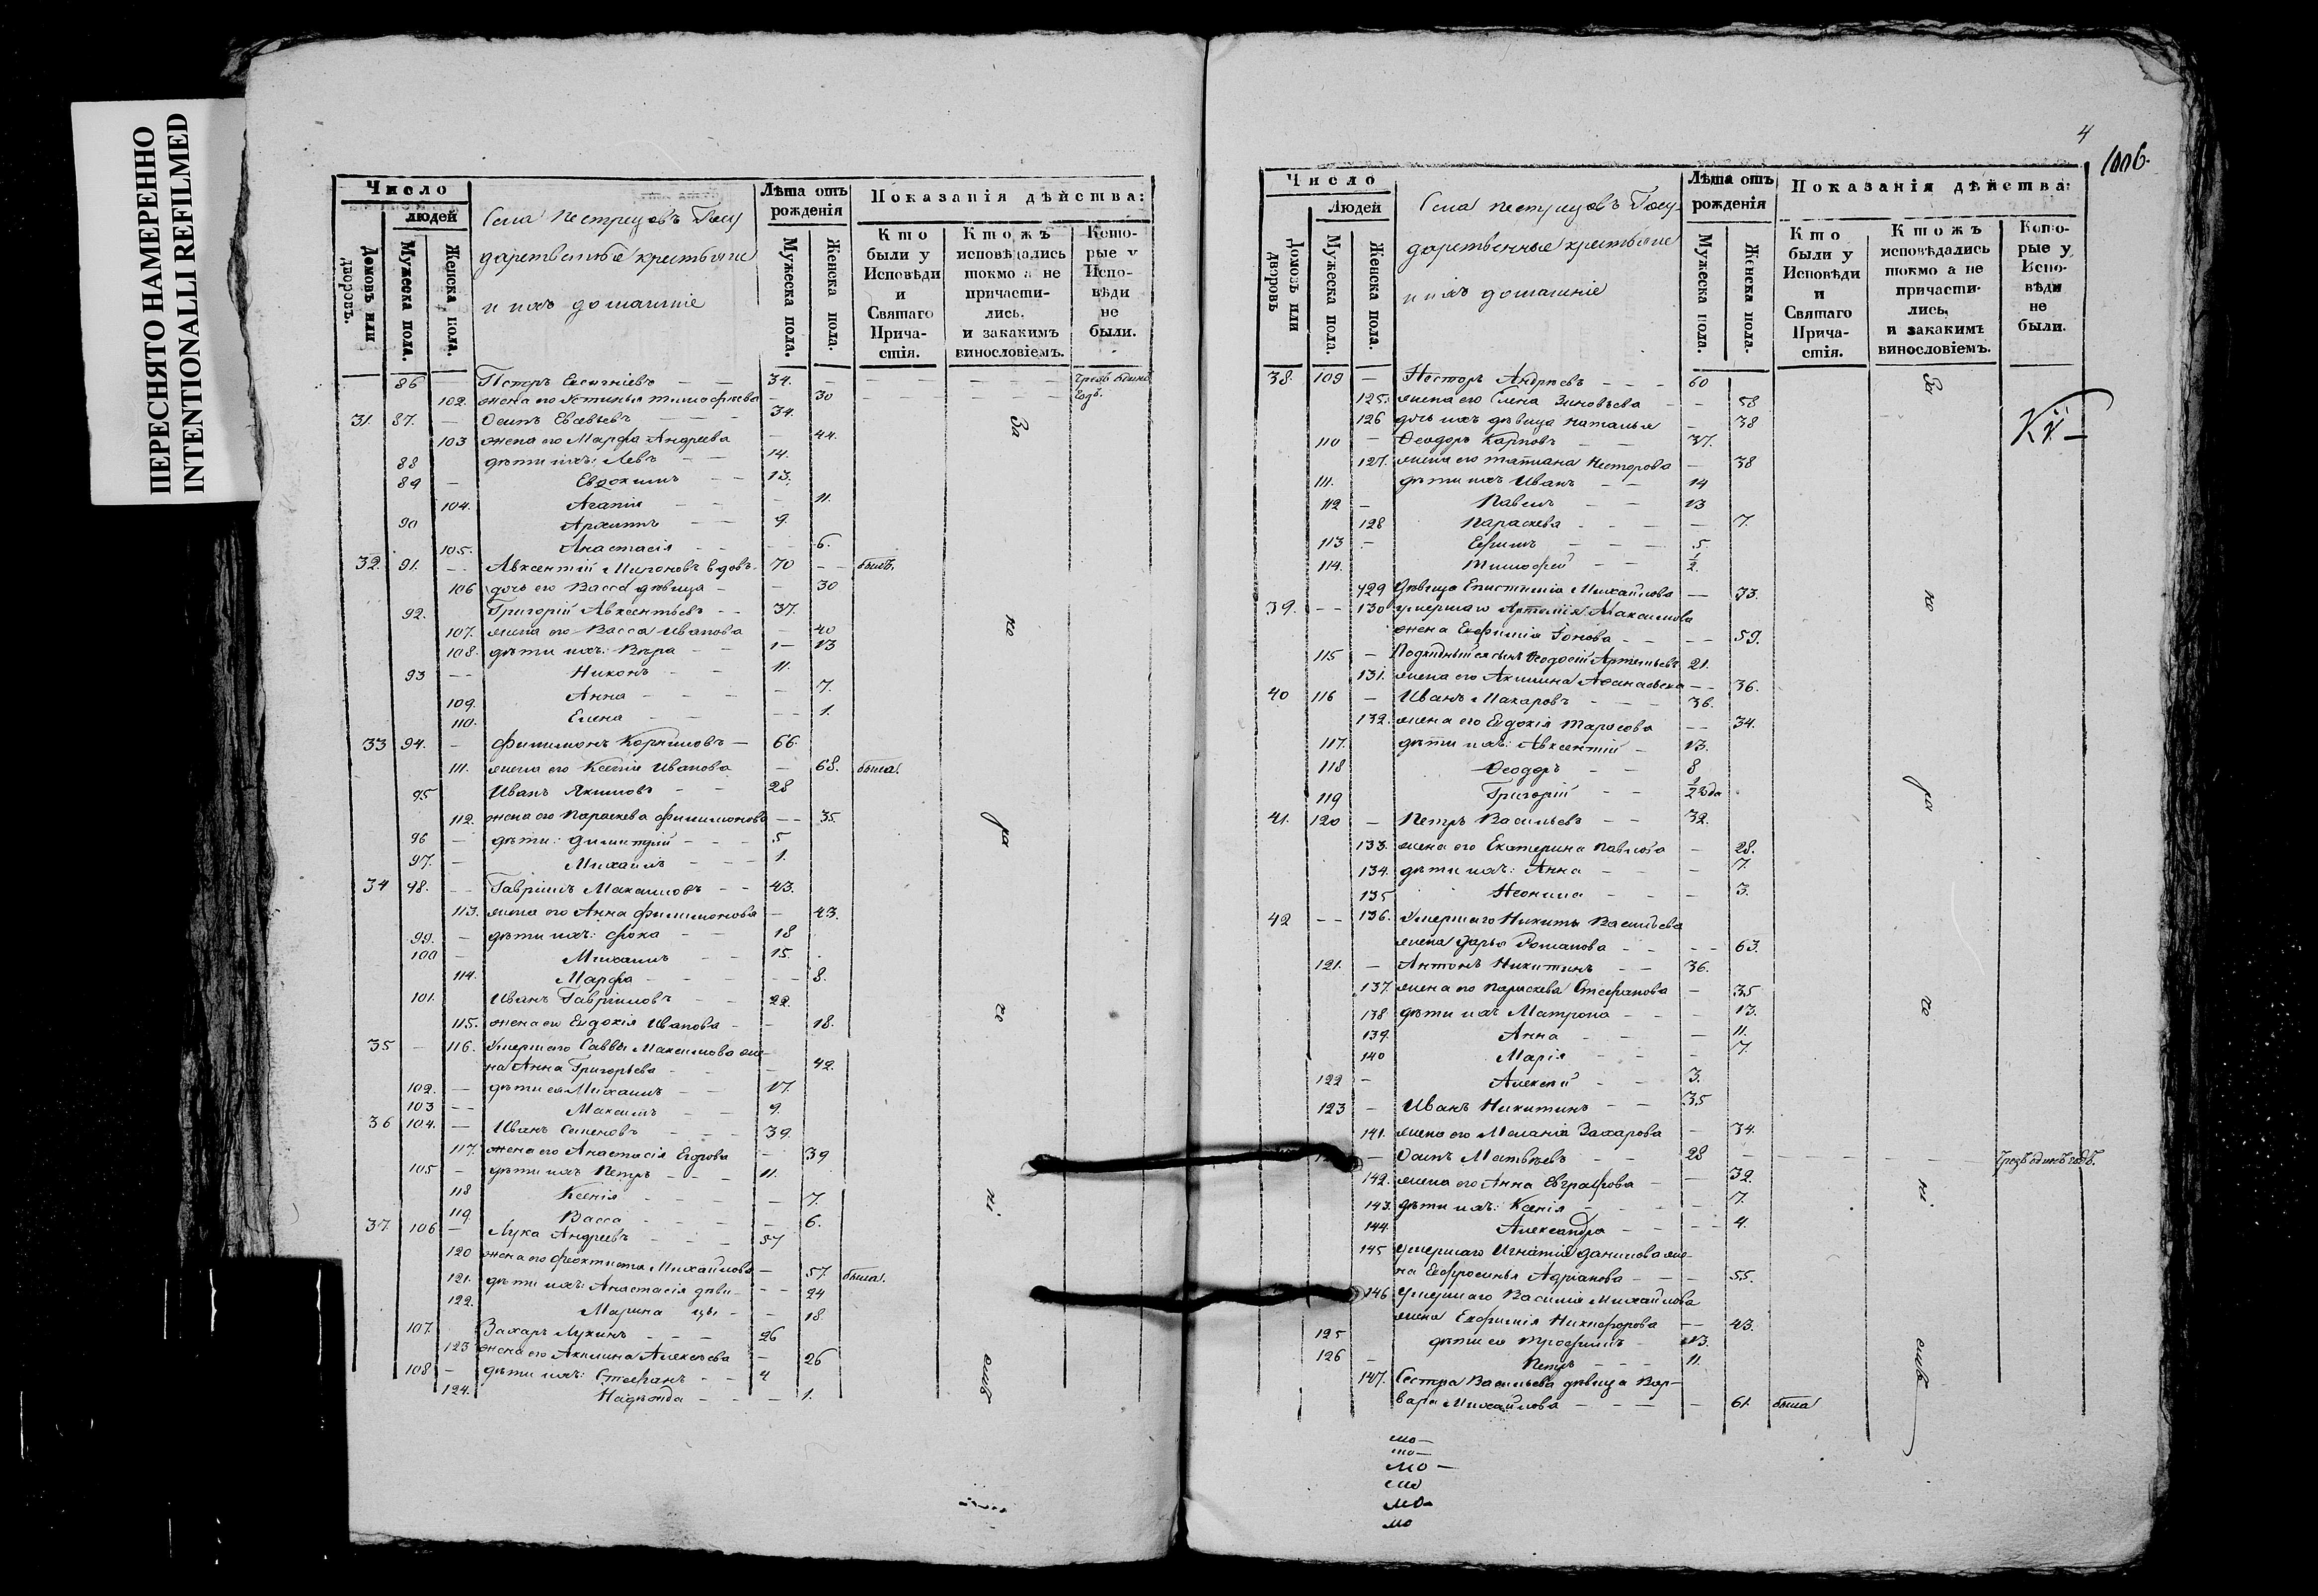 ПЕРЕСНЯТО НАМЕРЕННО
INTENTIONALLI REFILMED
Число
людей
Домовъ или дворовъ.
Мужеска пола.
Женска пола.
Села Пестрецовъ Госу
дарственные крестьяне
и ихъ домашніе
Лѣта отъ рожденія
Мужеска пола.
Женска пола.
Показанія дѣйства:
Кто были у Исповѣди и Святаго Прича-стія.
Ктожъ исповѣдались токмо а не причасти-лись. и закакимъ винословіемъ.
Кото-рые у Испо-вѣди не были.
86 — Петръ — — 34. — — — — Чрезъ одинъ годъ.
102. жена его Устинья Тимофѣева — 30
31. 87. — Осипъ — — 34.
103 жена его Марфа Андреева — 44.
88 дѣти ихъ: Левъ — — 14.
89 — Евдокимъ — — 13.
104. Агапія — — 11.
90 Архипъ — — 9.
105. Анастасія — — 6.
32. 91. — Авксентій Мироновъ вдовъ 70 — былъ.
106 дочь его Васса дѣвица — — 30
92. Григорій Авксентьевъ — — 37.
107. жена его Васса Иванова — 40
108. дѣти ихъ: Вѣра — — 13
93 — Никонъ — 11.
109. Анна — — — 7.
110. Елена — — — 1.
33 94. — Филимонъ Корниловъ — 66.
111. жена его Ксенія Иванова — 68. была.
95 Иванъ Якимовъ — — 28
112. жена его Параскева Филимонова — 35.
96 — дѣти: Димитрій — — 5
97. — Михаилъ — — 1.
34 98. — Гавріилъ Максимовъ — — 43.
113. жена его Анна Филимонова — 43.
99. — дѣти ихъ: Фока — — 18
100 — Михаилъ — — 15.
114. Марфа — — — 8.
101. Иванъ Гавріиловъ — — 22.
115. жена его Евдокія Иванова — — 18.
35 — 116. Умершаго Саввы Максимова же-
на Анна Григорьева — — 42.
102. — дѣти ея Михаилъ — 17.
103 — Максимъ — — 9.
36 104. — Иванъ Семеновъ — — 39.
117. жена его Анастасія Егорова — 39
105 — дѣти ихъ Петръ — — 11.
118 Ксенія — — — 7.
119 Васса — — — 6.
37. 106 — Лука Андреевъ — — 57
120 жена его Феоктиста Михайлова — 57. была.
121. дѣти ихъ: Анастасія дѣви- — 24
122. Марина цы — — 18
107. Захаръ Лукинъ — — 26
123 жена его Акилина Алексѣева — 26
108 — дѣти ихъ: Стефанъ — — 4
124. Надежда — — — 1.
За
не
ра
че
ні
емъ
4
1006.
Число
Людей
Домовъ или дворовъ
Мужеска пола.
Женска пола.
Села Пестрецовъ Госу-
дарственные крестьяне
и ихъ домашніе
Лѣта отъ рожденія
Мужеска пола.
Женска пола.
Показанія дѣйства:
Кто были у Исповѣди и Святаго Прича-стія.
Ктожъ исповѣдались токмо а не причасти-лись, и закакимъ винословіемъ.
Кото-рые у Испо-вѣди не были.
38. 109 — Несторъ Андреевъ — — 60
125. жена его Елена Зиновьева — — 58
126 дочь ихъ дѣвица Наталья — 38
110 — Ѳеодоръ Карповъ — — 37.
127. жена его Татиана Несторова — 38
111. дѣти ихъ Иванъ — — 14
112 — Павелъ — — 13
128 Параскева — — — 7.
113 — Ефимъ — — — 5.
114. Тимофей — — 1/2.
129 Дѣвица Епистимія Михайлова — 73.
39. — 130 Умершаго Артемія Максимова
жена Евфимія — — — 59.
115 — сынъ Ѳеодосій Артемьевъ 21.
131. жена его Акилина Аѳанасьева — 36.
40 116 — Иванъ Макаровъ — — 36.
132. жена его Евдокія Тарасова — — 34.
117. дѣти ихъ: Авксентій — 13.
118 Ѳеодоръ — — 8
119 Григорій — — 1/2 года
41. 120 — Петръ Васильевъ — — 32.
133. жена его Екатерина Павлова — 28.
134. дѣти ихъ: Анна — — — 7.
135 Неонила — — — 3.
42 — 136. Умершаго Никиты Васильева
жена Дарья Романова — — — 63.
121. — Антонъ Никитинъ — — 36.
137. жена его Параскева Стефанова — 35
138 дѣти ихъ Матрона — — — 13.
139. Анна — — — 11.
140 Марія — — — 7.
122 — Алексій — — 3.
123 — Иванъ Никитинъ — — 35
141. жена его Меланія Захарова — 34.
— Осипъ Матвѣевъ — — 28 — — — — Чрезъ одинъ годъ.
142. жена его Анна Евграфова — — 32.
143. дѣти ихъ: Ксенія — — — 7.
144. Александра — — — 4.
145 Умершаго Игнатія Данилова же-
на Евфросинья Адріанова — — — 55.
146 Умершаго Василія Михайлова
жена Евфимія Никифорова — 43.
125 дѣти ея Трофимъ — 13.
126 — Петръ — — — 11.
147. Сестра Васильева дѣвица Вар-
вара Михайлова — — — — 61. была
За
не
ра
че
ні
емъ
мо—
мо—
мо—
мо
мо—
мо